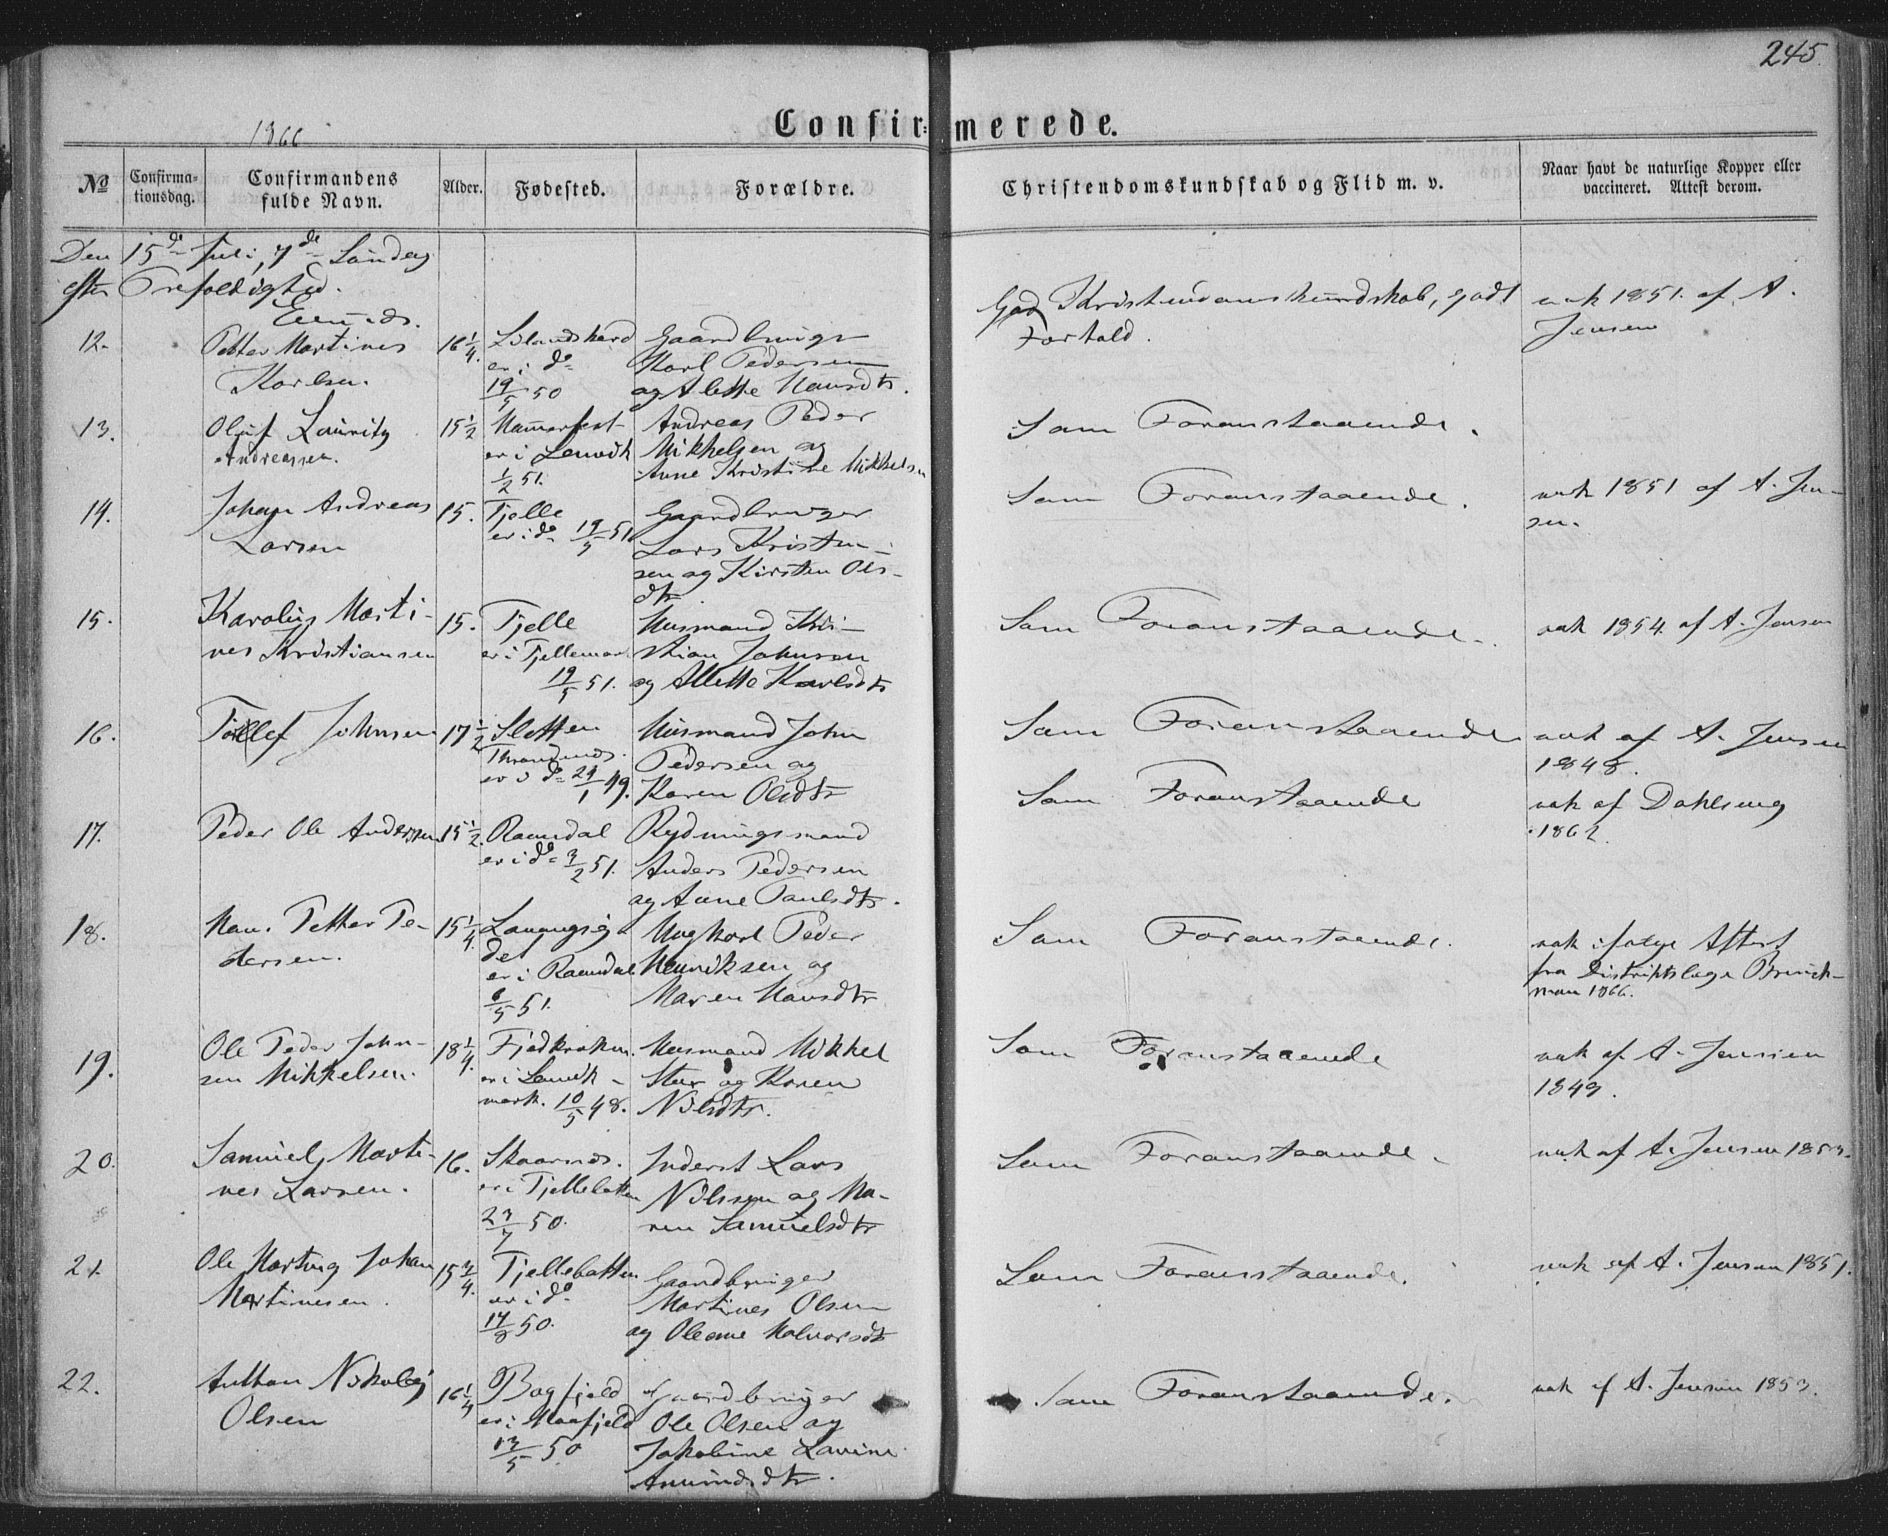 245.
Confirmerede.
1866
No
Confirmationsdag.
Confirmandens fulde Navn.
Alder.
Fødested.
Forældre.
Christendomskundskab og Flid m. v.
Naar havt de naturlige Kopper eller vaccineret. Attest derom.
Den 15de Juli, 7de Søndag
efter Trefoldighed.
12. Petter Martines 16 1/4.
Karlsen.
er i do
19/5 50
Gaardbruger
Karl Pedersen
og Alette Hansdtr.
God Kristendomskundskab, godt
Forhold.
vak 1851. af A.
Jensen
13. Oluf Lauritz 15 1/2 Hammerfest
Andreassen. er i Lenvik
1/2 51.
Andreas Peder
Mikkelsen og
Anne Kristine Mikkelsen
Som Foranstaaende.
14. Johan Andreas 15. Tjelle
Larsen er i do 19/5 51
Gaardbruger
Lars Kristen-
sen og Kirsten Ols-
dtr
Som Foranstaaende.
vak 1851 af A. Jen-
sen.
15. Karolus Marti- 15. Tjelle
nes Kristiansen er i Tjellemark
19/5 51.
Husmand Kri-
stian Johnsen
og Alette Karlsdtr
Som Foranstaaende.
vak 1854. af A. Jensen
16. Tollef Johnsen 17 1/2 Sletten
Husmand John
Pedersen og
Karen Olsdtr
Som Foranstaaende
vak af A. Jensen
1848.
17. Peder Ole Anderssen 15 1/2. Raundal
er i do 3/2 51.
Rydningsmand
Anders Pedersen
og Anne Paulsdtr.
Som Foranstaaende
vak af
1862.
18. Hans Petter Pe- 15 1/4.
dersen.
det
er i Raundal
6/5 51.
Ungkarl Peder
Henriksen og
Maren Hansdtr
Som Foranstaaende.
vak ifølge Attest
fra Distriktslæge
1866.
19. Ole Peder John- 18 1/4.
sen Mikkelsen.
er i Lenvik-
mark. 10/5 48.
Husmand Mikkel
og Karen
Nilsdtr.
Som Foranstaaende
vak af A. Jensen
1849.
20. Samuel Marti- 16. Skaarnes.
nes Larsen. er i Tjellebotten
23/7 50.
Inderst Lars
Nilssen og Ma-
ren Samuelsdtr
Som Foranstaaende.
vak af A. Jensen 1853.
21. Ole Hartvig Johan 15 3/4. Tjellebotten
Martinesen. er i do
17/8 50.
Gaardbruger
Martines Olsen
og Oleane Halvorsdtr
Som Foranstaaende.
vak af A. Jensen 1851.
22. Anthon Nikolai 16 1/4 Bogfjeld
Olsen
13/5 50
Gaardbruger
Ole Olsen og
Jakobine Lavine
Amundsdtr.
Som Foranstaaende.
vak af A. Jensen 1853.